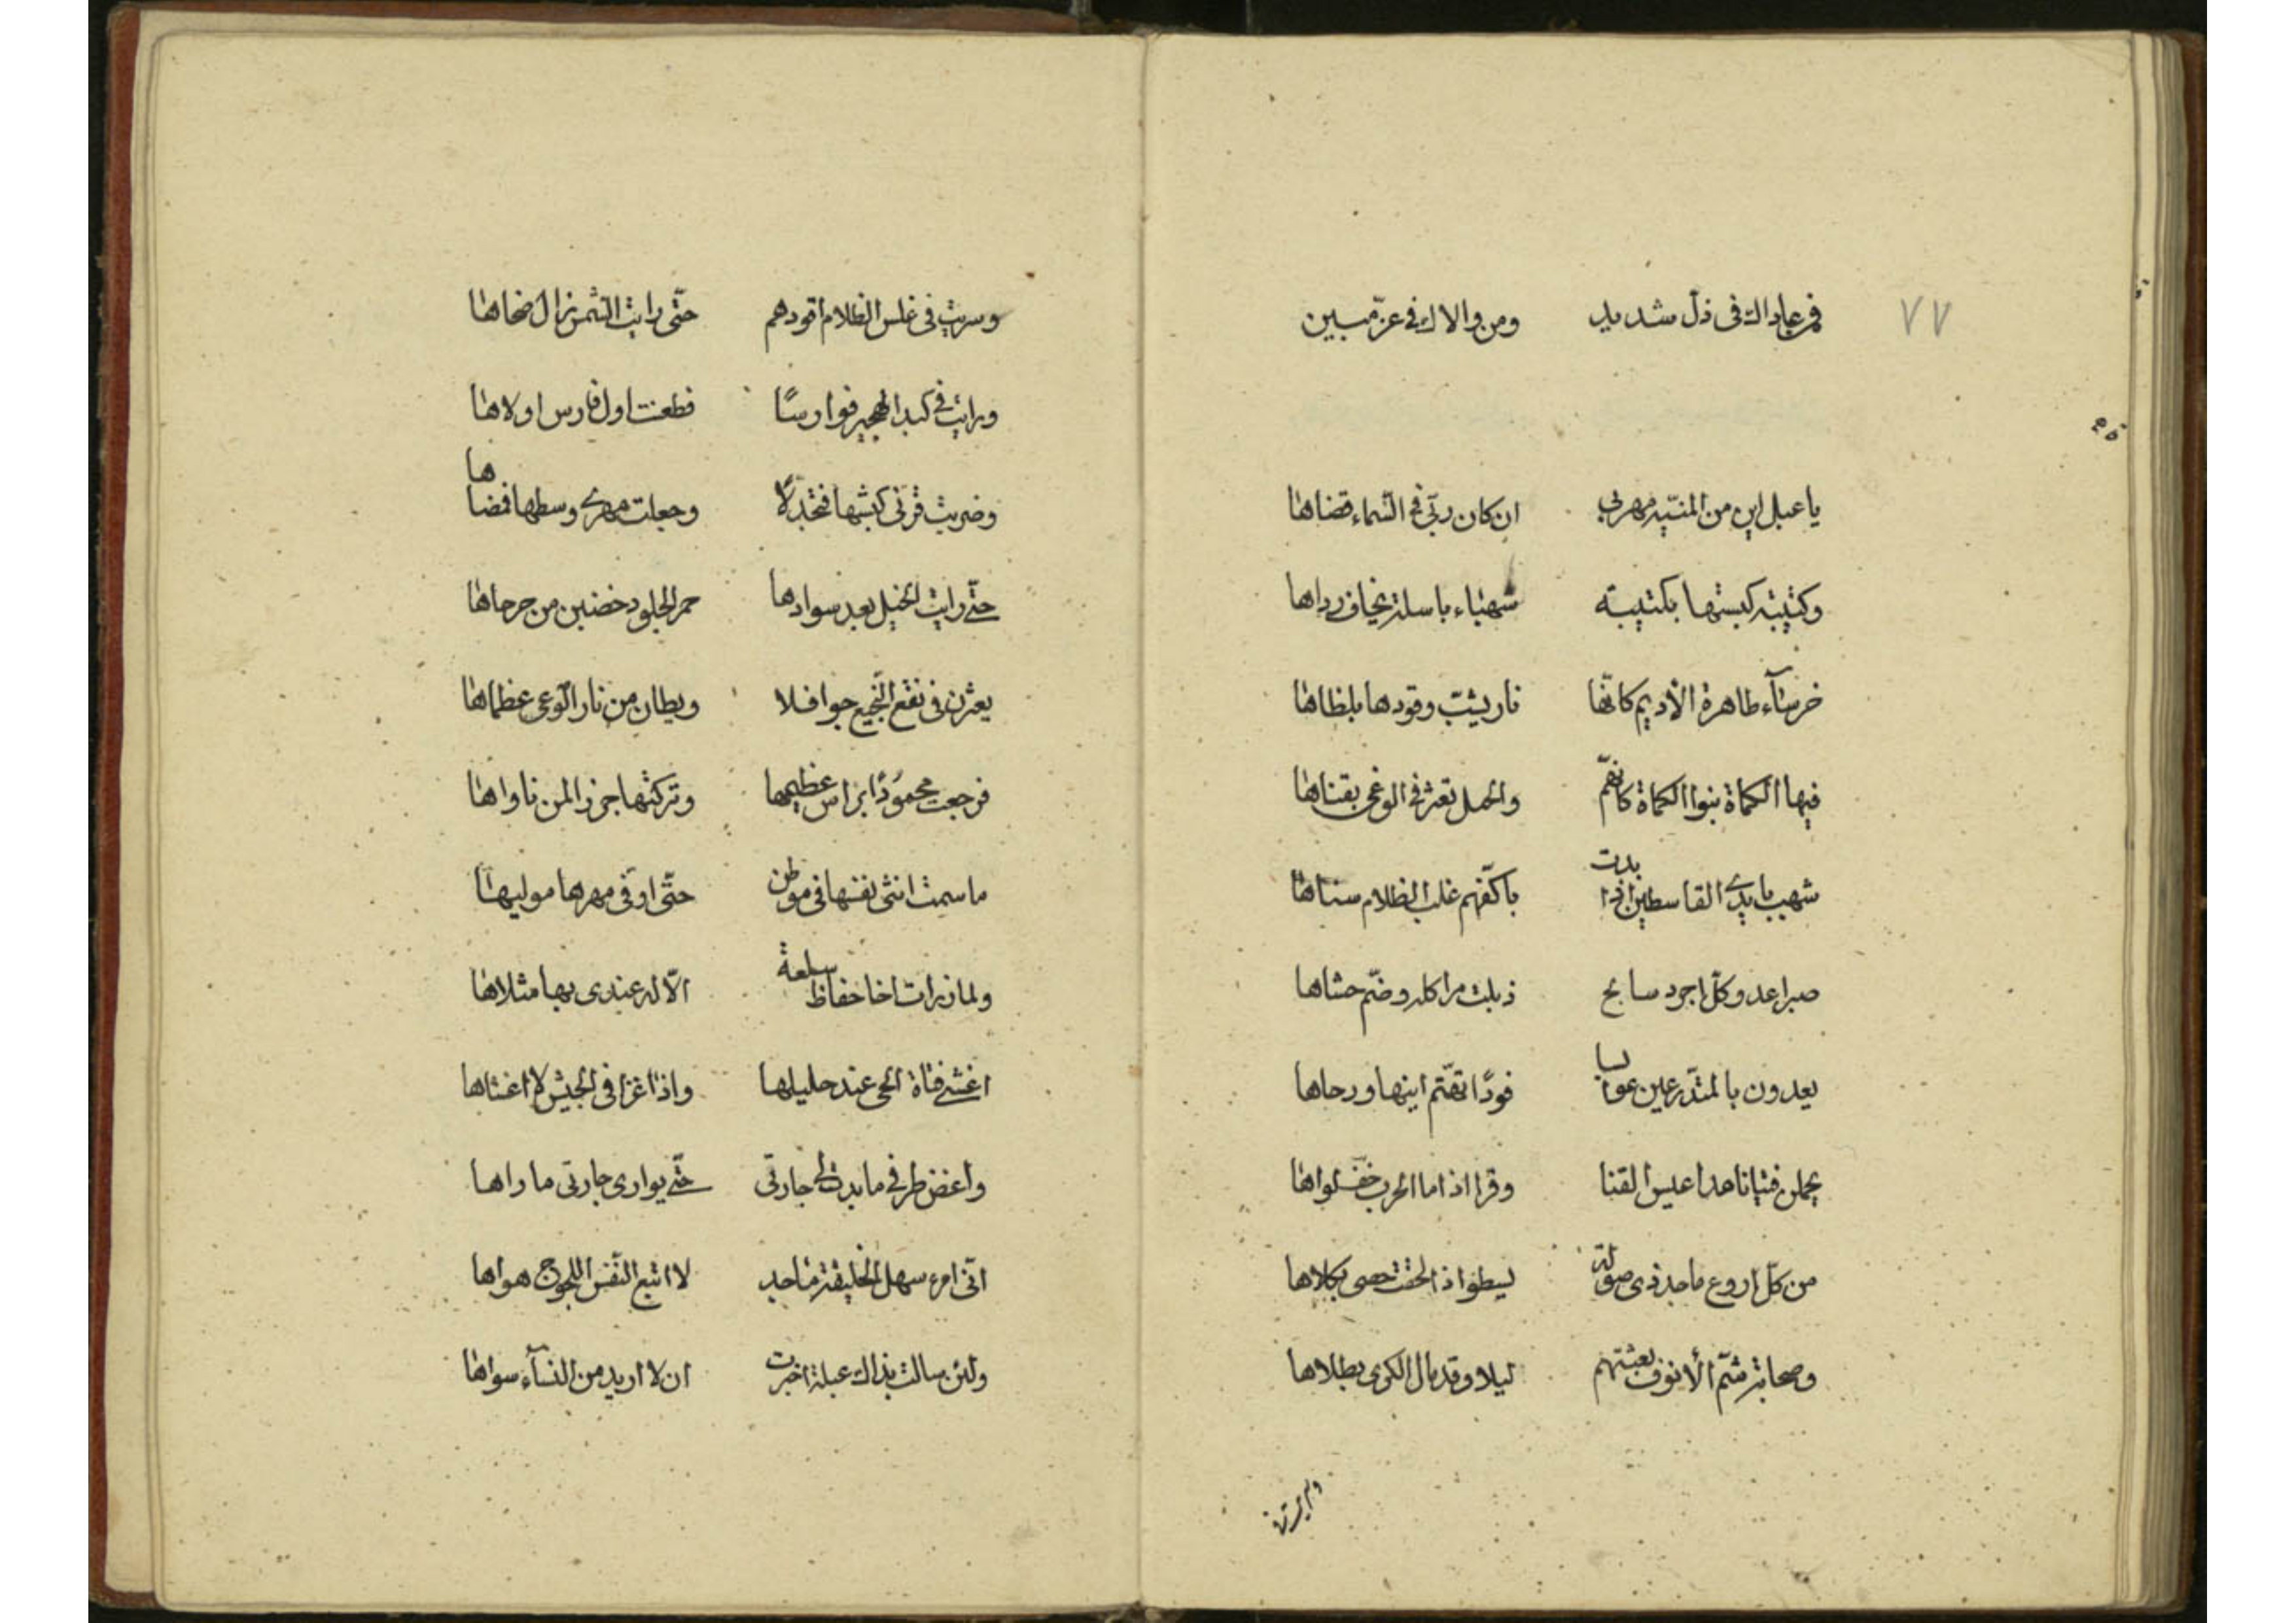 ٧٧
فمن عاداك فى ذلّ شديد ومن والاك فى عزّ مبين
يا عبل اين من المنيّه مهربى ان كان ربّى فى السّماء قضاها
وكتيبه لبستها بكتيبه شهباء باسله يخاف رداها
خرساء ظاهرة الأديم كانّها نار يشبّ وقودها بلظاها
فيها الكماة بنوا الكماة كانّهم والخيل تعثر فى الوغى بقناها
شهب بايدى القاسطين اذا بدت باكفّهم غلب الظلام سناها
صبر اعدو وكلّ اجرد سابح ذبلت مراكله وضمّ حشاها
يعدون بالمتدّرعين عوابسا قودًا تقسّم اينها ورحاها
يحملن فتيانا مداعيس القنا وقرا اذا ما الحرب خفّ لواها
من كلّ اروع ماجد ذى صولة يسطو اذا لحقت خصى بكلاها
وصحابة شمّ الأنوف بعثتهم ليلا وقد مال الكرى بطلاها
وسريت فى غلس الظلام اقودهم حتّى رايت الشّمس زال ضحاها
ورايت فى كبد الهجير فوارسًا فطعنت اول فارس اولاها
وضربت قرنى كبشها فتجدلًا وجعلت مهرى وسطها فضاها
حتّى رايت الخيل بعد سوادها حمر الجلود خضبن من جرحاها
يعثرن فى نقع النّجيع جوافلا ويطان من نار الوغى عظماها
فرجعت محمودًا براس عظيمها وتركتها جزرا لمن ناواها
ما سمت انثى نفسها فى موطن حتّى اوفّى مهرها موليها
ولما زرات اخا حفاظ سلعة الّا له عندى بها مثلاها
اغشى فتاة الحى عند حليلها واذا غزا فى الجيش لا اغشاها
واغض طرفى ما بدت لى جارتى حتّى يوارى جارتى ماواها
انّى امرء سهل الخليقة ماجد لا اتبع النّفس اللجوج هواها
ولئن سالت بذاك عبلة اخبرت ان لا اريد من النساء سواها
وسريت